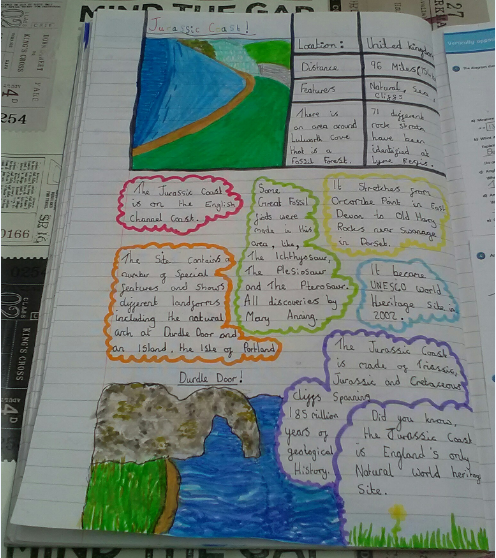 MIND THE GAP
Jurassic Coast!
Location: United Kingdom
Distance 96 Miles
Features Natural, Sea,
Cliffs.
There is
an area around
Lulworth Cove
that is a
Fossil Forest.
71 different
rock strata
have been
identified at
Lyme Regis.
The Jurassic Coast
is on the English
Channel Coast.
Some
Great Fossil
finds were
made in this
area, like,
The Ichthyosaur,
The Plesiosaur
and The Pterosaur.
All discoveries by
Mary Anning.
It Stretches from
Orcombe Point in East
Devon to Old Harry
Rocks near Swanage
in Dorset.
The Site contains a
number of Special
features and shows
different landforms
including the natural
arch at Durdle Door and
an Island, the Isle of Portland
It became
UNESCO World
Heritage Site in
2002.
Durdle Door!
The Jurassic Coast
is made of Triassic,
Jurassic and Cretaceous
Cliffs Spanning
185 million
years of
geological
History.
Did you know,
the Jurassic Coast
is England's only
Natural World heritage
Site.
KING'S CROSS
254
KING'S CROSS
MIND THE GAP